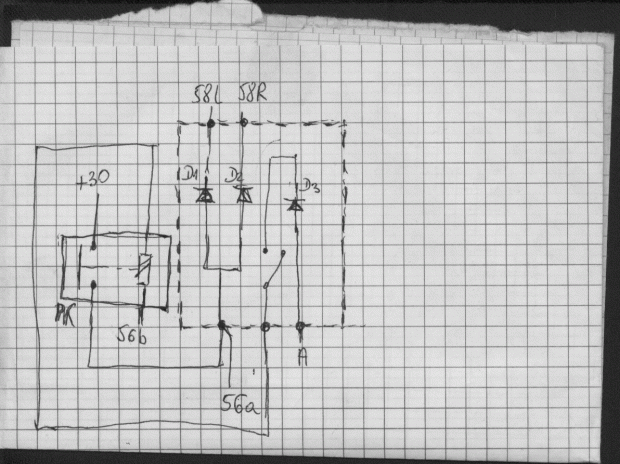 58L 58R
D1 D2 D3
+30
PK
56b
A
56a